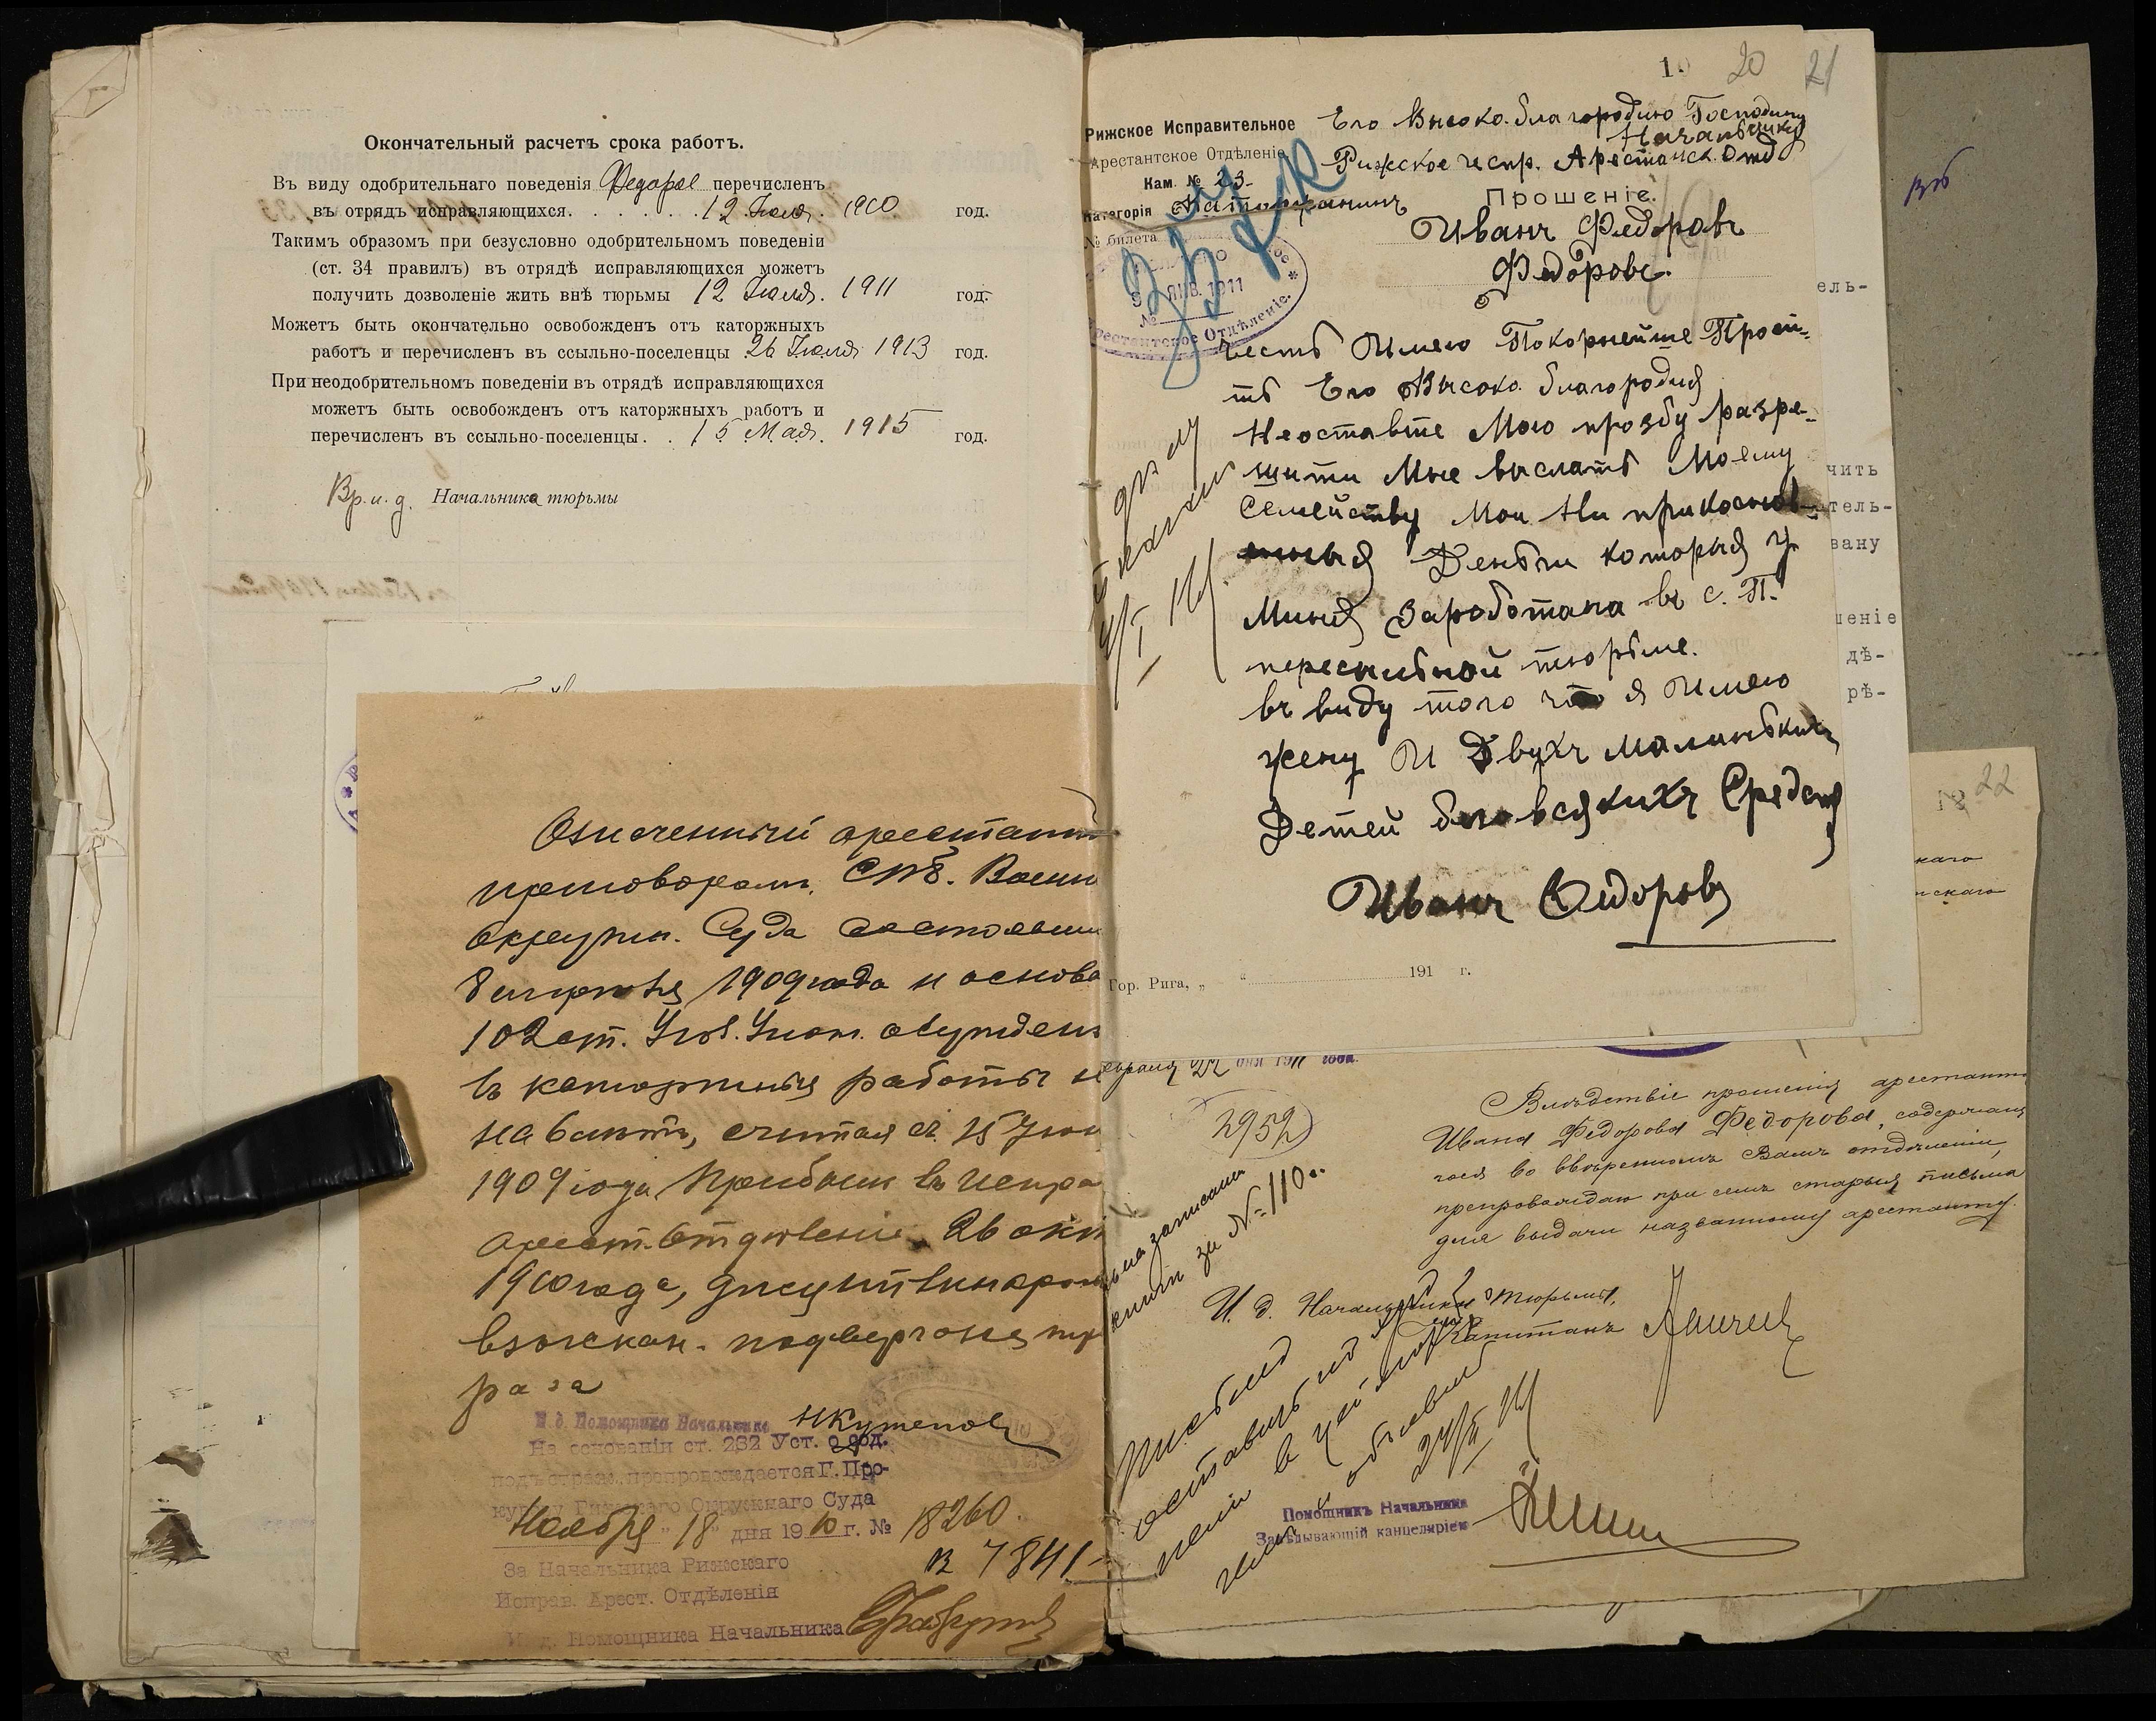 Окончательный расчетъ срока работъ.
Въ виду одобрительнаго поведенія Федоровъ перечисленъ
въ отрядъ исправляющихся. . . . . . 12 Іюля. 1910 год.
Такимъ образомъ при безусловно одобрительномъ поведеніи
(ст. 34 правилъ) въ отрядѣ исправляющихся можетъ
получить дозволеніе жить внѣ тюрьмы 12 Іюля. 1911 год.
Можетъ быть окончательно освобожденъ отъ каторжныхъ
работъ и перечисленъ въ ссыльно-поселенцы 26 Іюля 1913 год.
При неодобрительномъ поведеніи въ отрядѣ исправляющихся
можетъ быть освобожденъ отъ каторжныхъ работъ и
перечисленъ въ ссыльно-поселенцы. . 15 Мая. 1915 год.
Вр. и. д. Начальника тюрьмы
Означенный арестант
приговоромъ СПБ. Военн
Окружн. Суда состоявши
8 1909 года и основа
102 ст. Угол. Улож. осужденъ
въ каторжныя работы н
на 6 лѣтъ, считая съ 15
1909 года Прибылъ въ испра
арест. Отдѣленіе 26 окт
1910 года, дисциплинарн
взыскан. подвергался тр
раза
И. д. Помощника Начальника Кутеповъ
На основаніи ст. 282 Уст. о сод.
подъ страж. препровождается Г. Про-
курору Рижскаго Окружнаго Суда
Ноября „ 18 " дня 1910 г. № 18260.
В 7841
За Начальника Рижскаго
Исправ. Арест. Отдѣленія
И. д. Помощника Начальника
20 21
Рижское Исправительное
Арестантское Отдѣленіе
Кам. № 23
Категорія Каторжанинъ
№ билета
ЯНВ. 1911
№
Арестантское Отдѣленіе.
Его Высоко. благородию Господину
Начальнику
Рижское испр. Арестанск. Отд
Прошеніе.
Иванъ Федоровъ
Федоровъ.
Честь Имею Покорнейше Проси-
ть Его Высоко. благородия
Неоставте Мою прозбу разре-
шити Мне выслать Моему
Семейству Мои Ни прикоснов-
енныя Деньги которыя у
Миня Заработана въ С. П.
пересильной тюрьме.
въ виду того что я Имею
жену И Двухъ малиньких
Детей безовсякихъ Средств
Иванъ Федоровъ
Гор. Рига, „ " 191 г.
ель-
чить
тель-
вану
шеніе
дѣ-
рѣ-
22
каго
скаго
евраля 22 дня 1911 года.
2952
записана
книги за № 110
Вслѣдствіе прошенія арестанта
Ивана Федорова Федорова, содержащ
гося во ввѣренномъ Вамъ отдѣленіи,
препровождаю при семъ старыя письма
для выдачи названному арестанту.
И. д. Начальника тюрьмы,
Капитанъ
Письма
оставить
и объявить
24/II 11
Помощникъ Начальника
Завѣдывающій канцеляріею